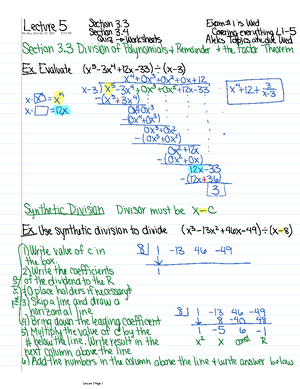 Lecture 5
Section 3.3
Section 3.4
Quiz → Worksheets
Exam #1 is Wed
Covering everything L1-5
Aleks Topics are due Wed
Section 3.3 Division of Polynomials + Remainder + the Factor Theorem
Ex. Evaluate (x⁵-3x⁴+12x-33)÷(x-3)
x⁴+0x³+0x²+0x+12
x-3) x⁵-3x⁴+0x³+0x²+12x-33
-(x⁵+3x⁴)
0x⁴+0x³
-(0x⁴+0x³)
0x³+0x²
-(0x³+0x²)
0x²+12x
-(0x²+0x)
12x-33
-(12x+36)
3
x⁴+12+ 3/x-3
x·x⁴=x⁵
x·□=12x
Synthetic Division Divisor must be x-c
Ex. Use synthetic division to divide (x³-13x²+46x-49)÷(x-8)
1) Write value of c in
the box.
2) Write the coefficients
of the dividend to the R
(0 place holders if necessary)
3) Skip a line and draw a
horizontal line.
4) Bring down the leading coefficient
5) Multiply the value of c by the
# below the line. Write result in the
next column above the line.
6) Add the numbers in the column above the line + write answer below
8 | 1 -13 46 -49
↓
1
8 | 1 -13 46 -49
↓ 8 -40 48
1 -5 6 -1
x² x const R
Lecture 5 Page 1